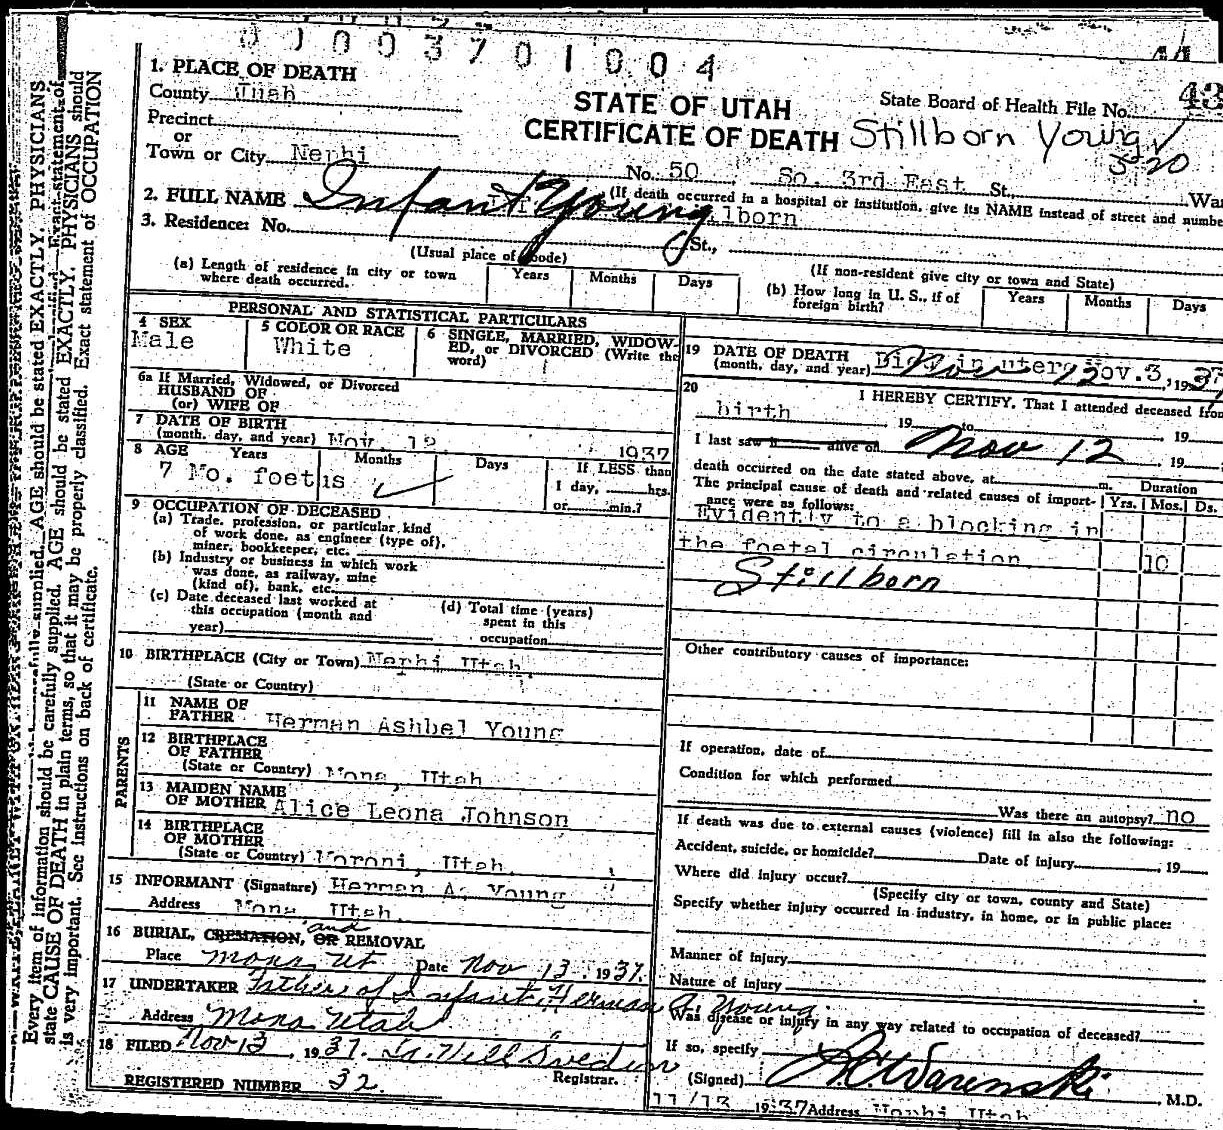 0 1 0 0 3 7 0 1 0 0 4
44
1. PLACE OF DEATH
County Juab
STATE OF UTAH
CERTIFICATE OF DEATH
State Board of Health File No. 43
Stillborn Young
520
Precinct
or
Town or City Nephi
No. 50 So. 3rd East St. War
(If death occurred in a hospital or institution, give its NAME instead of street and numbe
2. FULL NAME Infant Young
3. Residence: No. St.,
(Usual place of abode)
(If non-resident give city or town and State)
(a) Length of residence in city or town where death occurred. Years Months Days
(b) How long in U. S., if of foreign birth? Years Months Days
PERSONAL AND STATISTICAL PARTICULARS
4 SEX
Male
5 COLOR OR RACE
White
6 SINGLE, MARRIED, WIDOW-
ED, or DIVORCED (Write the
word)
6a If Married, Widowed, or Divorced
HUSBAND OF
(or) WIFE OF
7 DATE OF BIRTH
(month, day, and year) Nov. 12 1937
8 AGE Years Months Days If LESS than
7 Mo. foetus
1 day, hrs.
or min.?
9 OCCUPATION OF DECEASED
(a) Trade, profession, or particular kind
of work done, as engineer (type of),
miner, bookkeeper, etc.
(b) Industry or business in which work
was done, as railway, mine
(kind of), bank, etc.
(c) Date deceased last worked at
this occupation (month and
year)
(d) Total time (years)
spent in this
occupation
10 BIRTHPLACE (City or Town) Nephi Utah.
(State or Country)
PARENTS
11 NAME OF
FATHER Herman Ashbel Young
12 BIRTHPLACE
OF FATHER
(State or Country) Mona, Utah
13 MAIDEN NAME
OF MOTHER Alice Leona Johnson
14 BIRTHPLACE
OF MOTHER
(State or Country) Moroni, Utah.
15 INFORMANT (Signature) Herman A. Young
Address Mona, Utah.
16 BURIAL, CREMATION, OR and REMOVAL
Place Mona Ut Date Nov 13, 1937.
17 UNDERTAKER Father of Infant Herman A. Young
Address Mona Utah
18 FILED Nov 13, 1937.
Registrar.
REGISTERED NUMBER 32
19 DATE OF DEATH
(month, day, and year) Nov 12 Nov. 3, 1937
20 I HEREBY CERTIFY, That I attended deceased from
birth, 19 to , 19
I last saw h alive on Nov 12, 19
death occurred on the date stated above, at m.
The principal cause of death and related causes of import-
ance were as follows:
Duration
Yrs. Mos. Ds.
Evidently to a blocking in
the foetal circulation 10
Stillborn
Other contributory causes of importance:
If operation, date of
Condition for which performed
Was there an autopsy? no
If death was due to external causes (violence) fill in also the following:
Accident, suicide, or homicide? Date of injury , 19
Where did injury occur?
(Specify city or town, county and State)
Specify whether injury occurred in industry, in home, or in public place:
Manner of injury
Nature of injury
Was disease or injury in any way related to occupation of deceased?
If so, specify
(Signed) M.D.
11/13 1937 Address Nephi, Utah
Every item of information should be carefully supplied. AGE should be stated EXACTLY. PHYSICIANS should
state CAUSE OF DEATH in plain terms, so that it may be properly classified. Exact statement of OCCUPATION
is very important. See instructions on back of certificate.